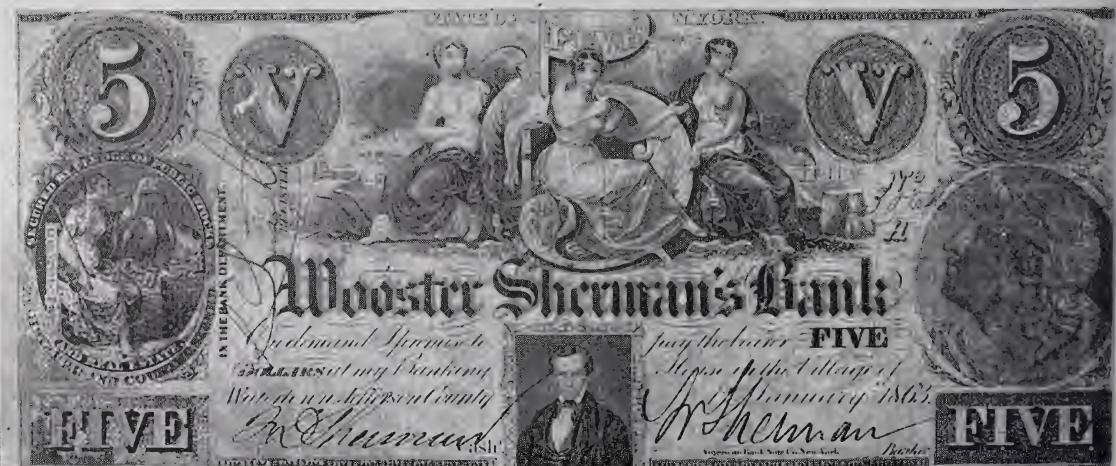 STATE OF NEW YORK.
FIVE
5 V V 5
IN THE BANK DEPARTMENT.
REGISTER
Wooster Sherman's Bank
On demand I promise to pay the bearer FIVE
DOLLARS at my Banking House in the Village of
Watertown Jefferson County January 1863.
Sherman Cash. W Sherman Banker
American Bank Note Co. New-York
FIVE FIVE